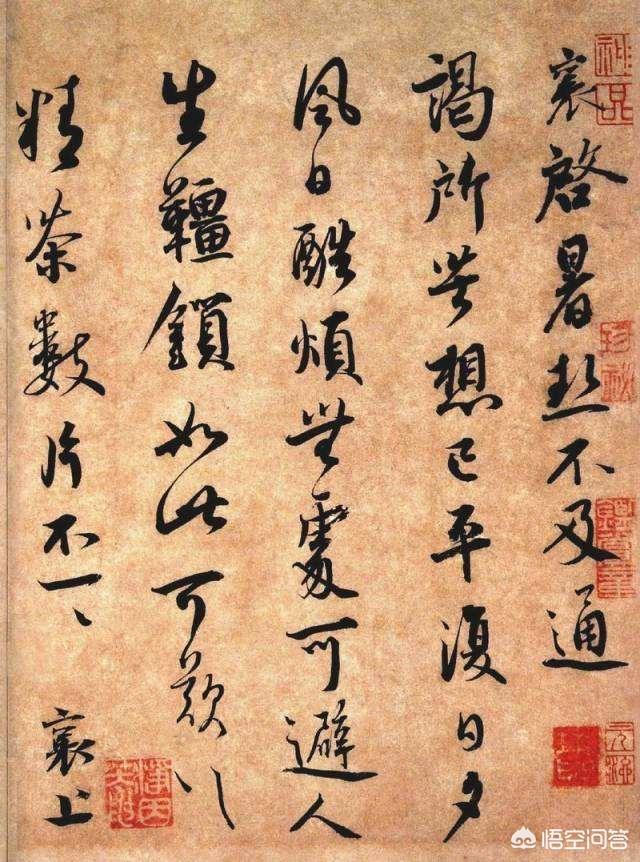 襄啓暑熱不及通
謁所苦想已平復日夕
風日酷煩無處可避人
生韁鎖如此可歎〻〻
精茶數片不一〻 襄上
神品
珍秘
悟空问答